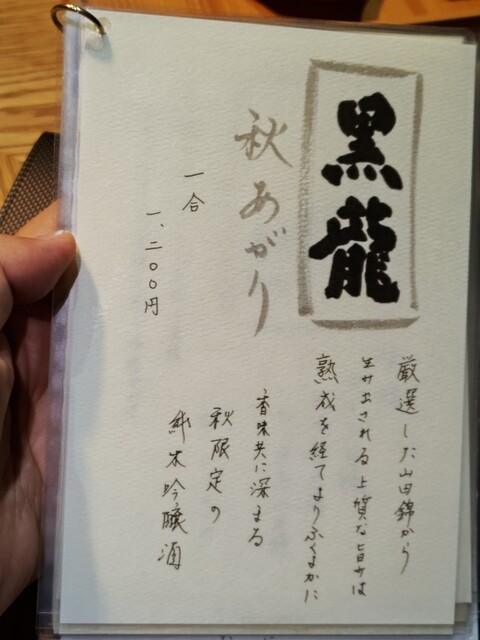 黒龍
秋あがり
一合
一、二〇〇円
厳選した山田錦から
生み出される上質な旨みは
熟成を経てよりふくよかに
香味共に深まる
秋限定の
純米吟醸酒